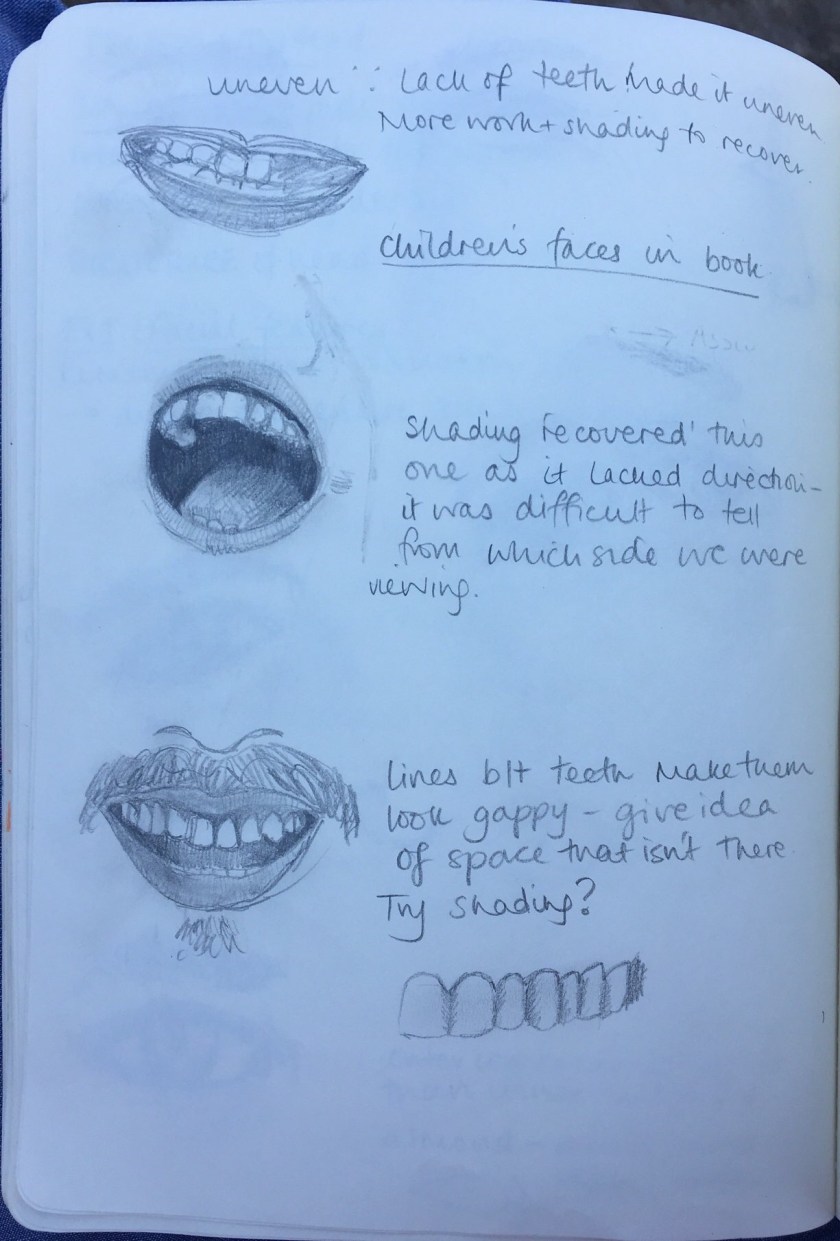 uneven ∵ Lack of teeth made it uneven
More work + shading to recover.
children's faces in book
shading 'recovered' this
one as it lacked direction -
it was difficult to tell
from which side we were
viewing.
lines b/t teeth make them
look gappy - give idea
of space that isn't there.
Try shading?